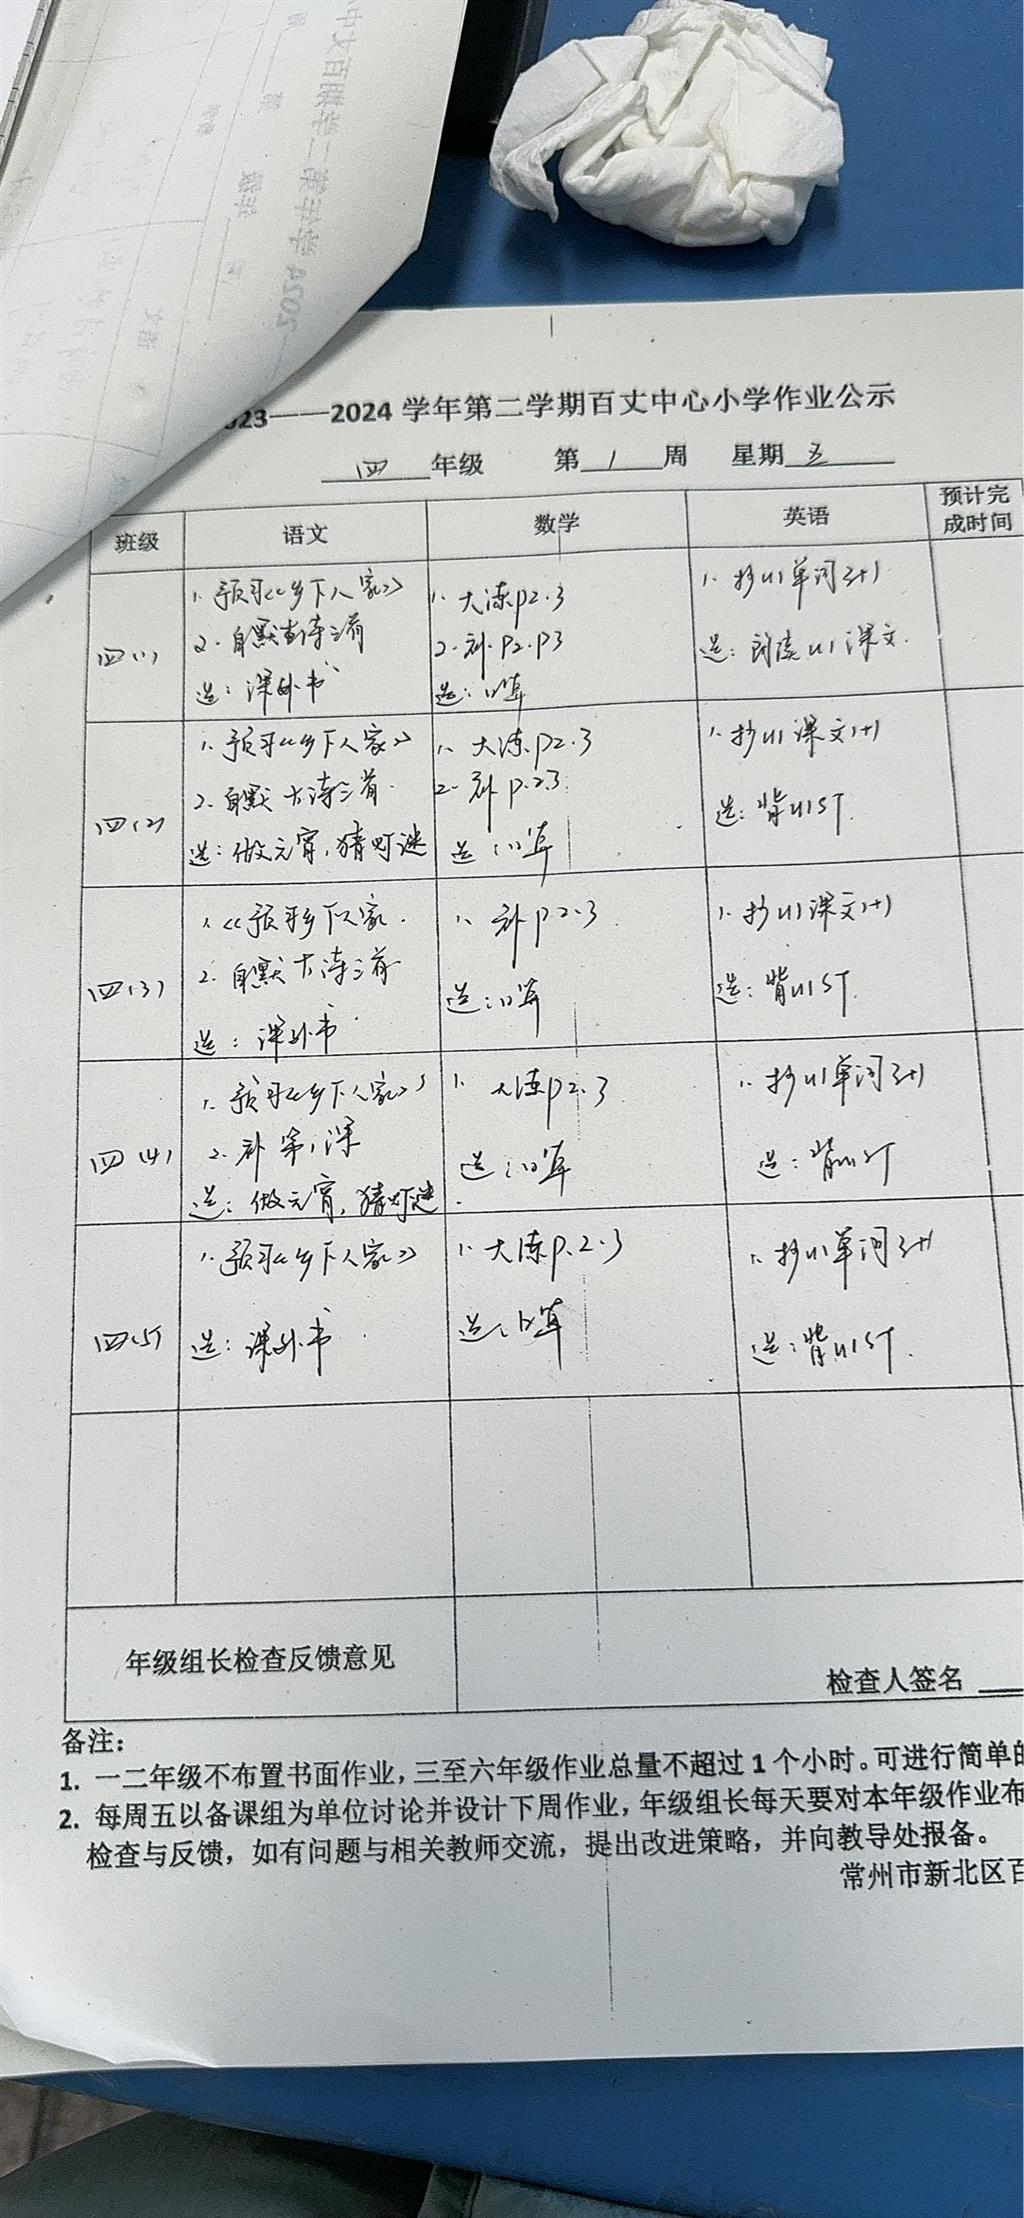 023——2024 学年第二学期百丈中心小学作业公示
四 年级 第 1 周 星期 五
班级 语文 数学 英语 预计完成时间
四(1)
1. 预习《乡下人家》
2. 自默古诗三首
选: 课外书
1. 大练P2.3
2. 补.P2.P3
选: 口算
1. 抄U1单词3+1
选: 朗读U1课文.
四(2)
1. 预习《乡下人家》
2. 自默古诗三首.
选: 做元宵, 猜灯谜
1. 大练P2.3
2. 补 P.2.3
选: 口算
1. 抄U1课文1+1
选: 背U1ST.
四(3)
1. 《预习乡下人家.
2. 自默古诗三首
选: 课外书
1. 补P2.3
选: 口算
1. 抄U1课文1+1
选: 背U1ST.
四(4)
1. 预习《乡下人家》
2. 补 第1课
选: 做元宵, 猜灯谜.
1. 大练P2.3
选: 口算
1. 抄U1单词3+1
选: 背U1ST
四(5)
1. 预习《乡下人家》
选: 课外书
1. 大练P.2.3
选: 口算
1. 抄U1单词3+1
选: 背U1ST.
年级组长检查反馈意见
检查人签名
备注:
1. 一二年级不布置书面作业，三至六年级作业总量不超过 1 个小时。可进行简单的
2. 每周五以备课组为单位讨论并设计下周作业，年级组长每天要对本年级作业布
检查与反馈，如有问题与相关教师交流，提出改进策略，并向教导处报备。
常州市新北区百